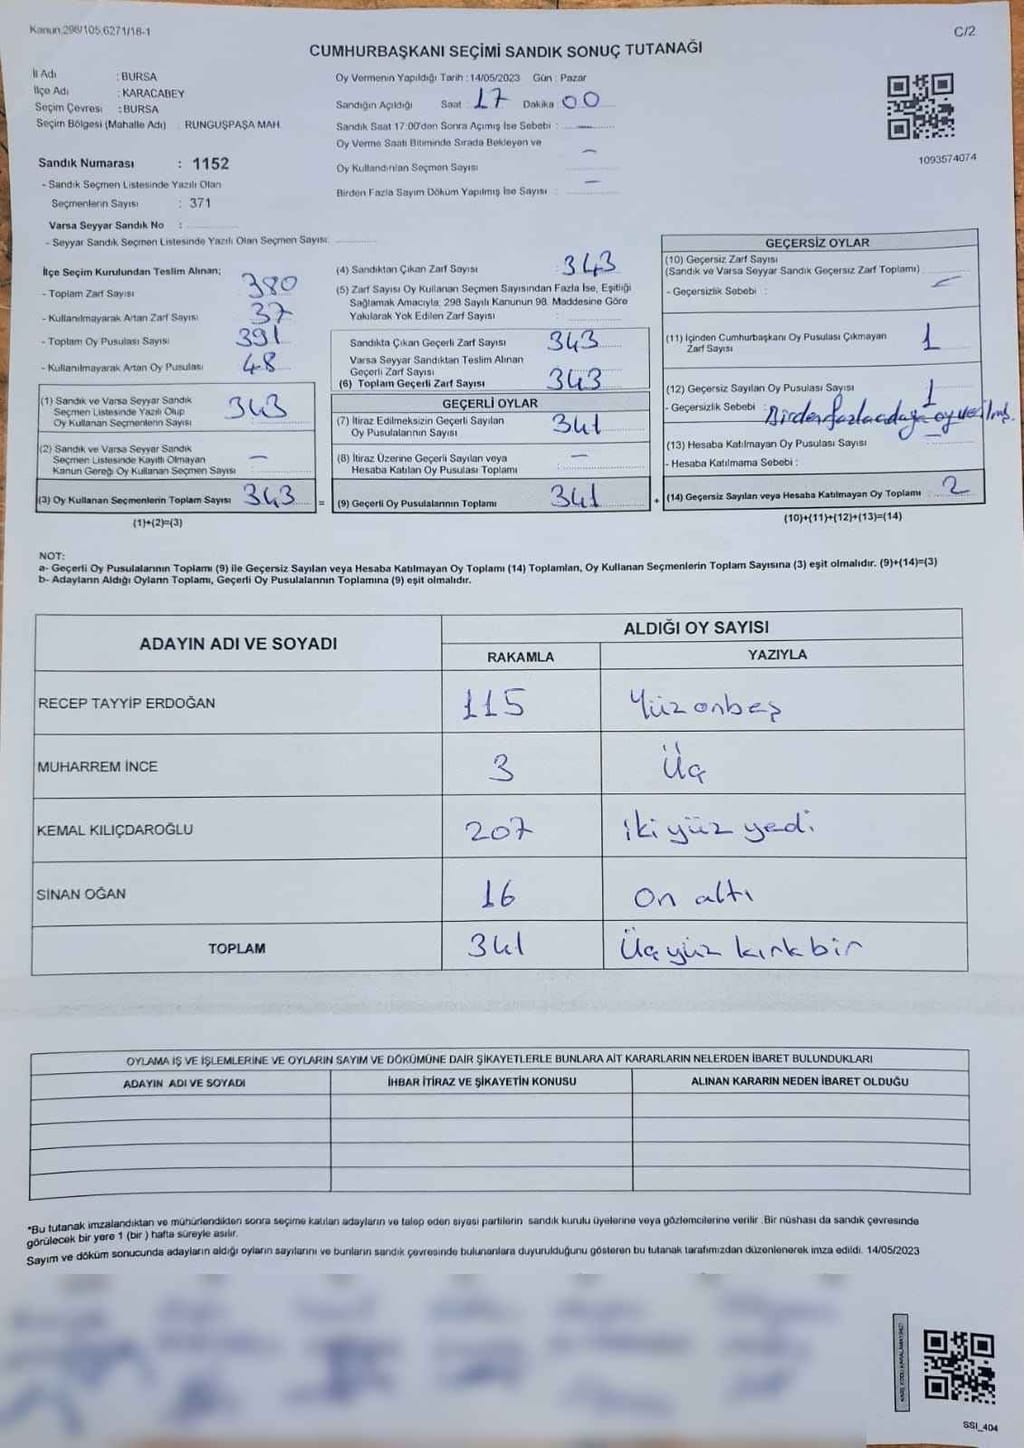 Kanun 298/105,6271/18-1
C/2
CUMHURBAŞKANI SEÇİMİ SANDIK SONUÇ TUTANAĞI
İl Adı : BURSA
İlçe Adı : KARACABEY
Seçim Çevresi : BURSA
Seçim Bölgesi (Mahalle Adı) RUNGUŞPAŞA MAH.
Oy Vermenin Yapıldığı Tarih : 14/05/2023 Gün : Pazar
Sandığın Açıldığı Saat : 17 Dakika : 00
Sandık Saat 17:00'den Sonra Açımış İse Sebebi : —
Oy Verme Saati Bitiminde Sırada Bekleyen ve
Oy Kullandırılan Seçmen Sayısı —
Birden Fazla Sayım Döküm Yapılmış İse Sayısı —
1093574074
Sandık Numarası : 1152
- Sandık Seçmen Listesinde Yazılı Olan
Seçmenlerin Sayısı : 371
Varsa Seyyar Sandık No :
- Seyyar Sandık Seçmen Listesinde Yazılı Olan Seçmen Sayısı:
İlçe Seçim Kurulundan Teslim Alınan;
- Toplam Zarf Sayısı 380
- Kullanılmayarak Artan Zarf Sayısı 37
- Toplam Oy Pusulası Sayısı 391
- Kullanılmayarak Artan Oy Pusulası 48
(1) Sandık ve Varsa Seyyar Sandık
Seçmen Listesinde Yazılı Olup
Oy Kullanan Seçmenlerin Sayısı 343
(2) Sandık ve Varsa Seyyar Sandık
Seçmen Listesinde Kayıtlı Olmayan
Kanun Gereği Oy Kullanan Seçmen Sayısı —
(3) Oy Kullanan Seçmenlerin Toplam Sayısı 343 =
(1)+(2)=(3)
(4) Sandıktan Çıkan Zarf Sayısı 343
(5) Zarf Sayısı Oy Kullanan Seçmen Sayısından Fazla İse, Eşitliği
Sağlamak Amacıyla, 298 Sayılı Kanunun 98. Maddesine Göre
Yakılarak Yok Edilen Zarf Sayısı :
Sandıkta Çıkan Geçerli Zarf Sayısı 343
Varsa Seyyar Sandıktan Teslim Alınan
Geçerli Zarf Sayısı
(6) Toplam Geçerli Zarf Sayısı 343
GEÇERLİ OYLAR
(7) İtiraz Edilmeksizin Geçerli Sayılan
Oy Pusulalarının Sayısı 341
(8) İtiraz Üzerine Geçerli Sayılan veya
Hesaba Katılan Oy Pusulası Toplamı —
(9) Geçerli Oy Pusulalarının Toplamı 341 +
GEÇERSİZ OYLAR
(10) Geçersiz Zarf Sayısı
(Sandık ve Varsa Seyyar Sandık Geçersiz Zarf Toplamı) —
- Geçersizlik Sebebi :
(11) İçinden Cumhurbaşkanı Oy Pusulası Çıkmayan
Zarf Sayısı 1
(12) Geçersiz Sayılan Oy Pusulası Sayısı 1
- Geçersizlik Sebebi : Birden fazla adaya oy verilmiş.
(13) Hesaba Katılmayan Oy Pusulası Sayısı —
- Hesaba Katılmama Sebebi :
(14) Geçersiz Sayılan veya Hesaba Katılmayan Oy Toplamı 2
(10)+(11)+(12)+(13)=(14)
NOT:
a- Geçerli Oy Pusulalarının Toplamı (9) ile Geçersiz Sayılan veya Hesaba Katılmayan Oy Toplamı (14) Toplamları, Oy Kullanan Seçmenlerin Toplam Sayısına (3) eşit olmalıdır. (9)+(14)=(3)
b- Adayların Aldığı Oyların Toplamı, Geçerli Oy Pusulalarının Toplamına (9) eşit olmalıdır.
ADAYIN ADI VE SOYADI
ALDIĞI OY SAYISI
RAKAMLA YAZIYLA
RECEP TAYYİP ERDOĞAN 115 Yüz onbeş
MUHARREM İNCE 3 Üç
KEMAL KILIÇDAROĞLU 207 iki yüz yedi
SİNAN OĞAN 16 On altı
TOPLAM 341 Üç yüz kırk bir
OYLAMA İŞ VE İŞLEMLERİNE VE OYLARIN SAYIM VE DÖKÜMÜNE DAİR ŞİKAYETLERLE BUNLARA AİT KARARLARIN NELERDEN İBARET BULUNDUKLARI
ADAYIN ADI VE SOYADI İHBAR İTİRAZ VE ŞİKAYETİN KONUSU ALINAN KARARIN NEDEN İBARET OLDUĞU
*Bu tutanak imzalandıktan ve mühürlendikten sonra seçime katılan adayların ve talep eden siyasi partilerin sandık kurulu üyelerine veya gözlemcilerine verilir .Bir nüshası da sandık çevresinde
görülecek bir yere 1 (bir ) hafta süreyle asılır.
Sayım ve döküm sonucunda adayların aldığı oyların sayılarını ve bunların sandık çevresinde bulunanlara duyurulduğunu gösteren bu tutanak tarafımızdan düzenlenerek imza edildi. 14/05/2023
SSI_404